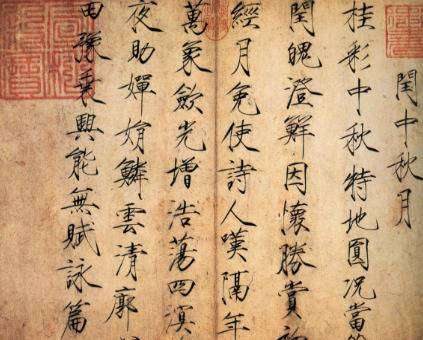 閏中秋月
桂彩中秋特地圓況當
閏魄澄鮮因懷勝賞
經月免使詩人嘆隔年
萬象斂光增浩蕩四溟
夜助嬋娟鱗雲清廓
田豫乘興能無賦詠篇